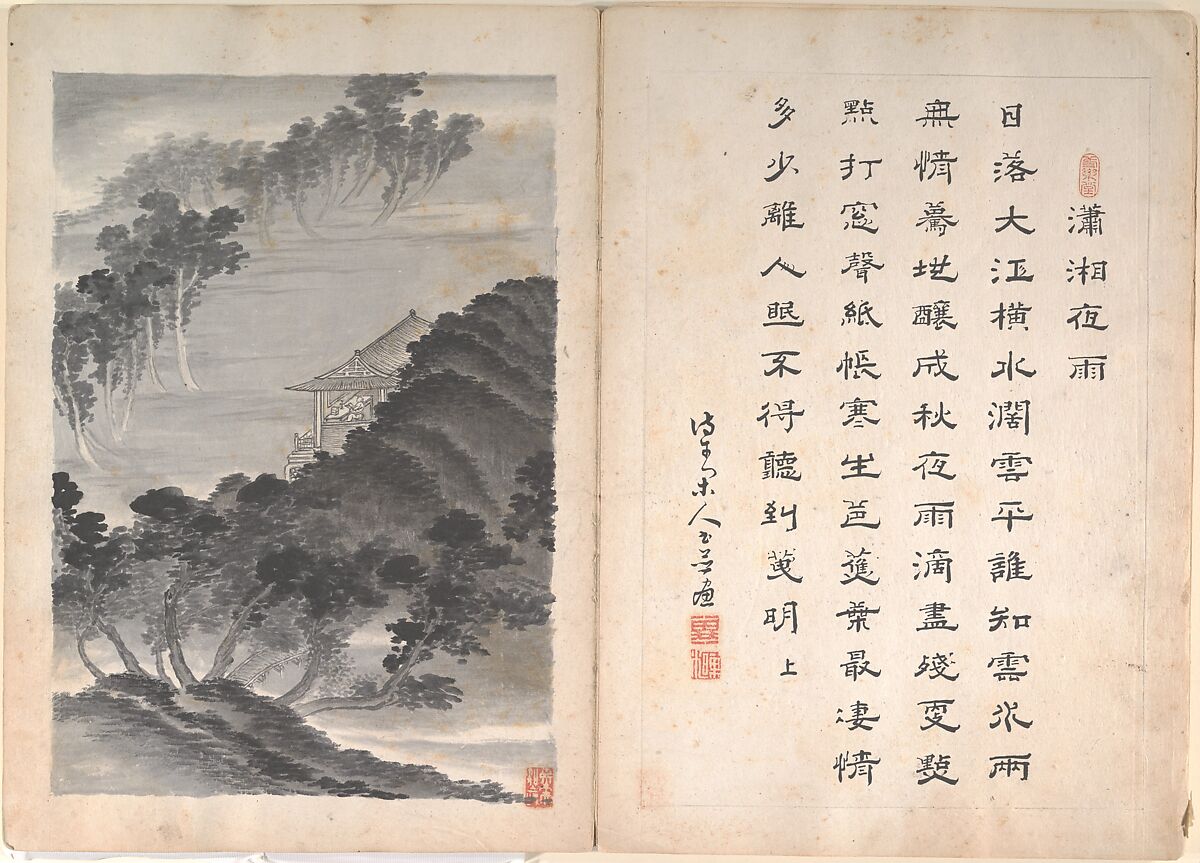 瀟湘夜雨
日落大江橫水濶雲平誰知雲水兩
無情驀地釀成秋夜雨滴盡殘更點
點打窓聲紙帳寒生芭蕉葉最凄情
多少離人眠不得聽到明上
人書并畫